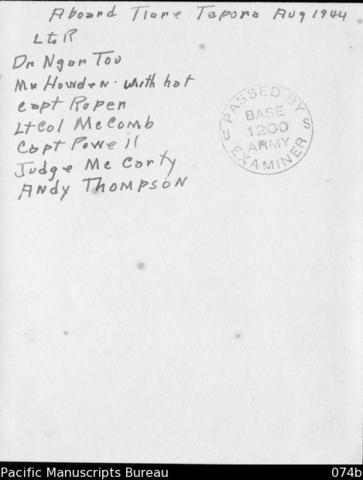 Aboard Tiare Taporo Aug 1944
L to R
Dr Ngan Too
Mr Howden - with hat
Capt Roper
Lt Col McComb
Capt Powell
Judge McCarty
Andy Thompson
PASSED BY
BASE
1200
ARMY
U S
EXAMINER
Pacific Manuscripts Bureau
074b